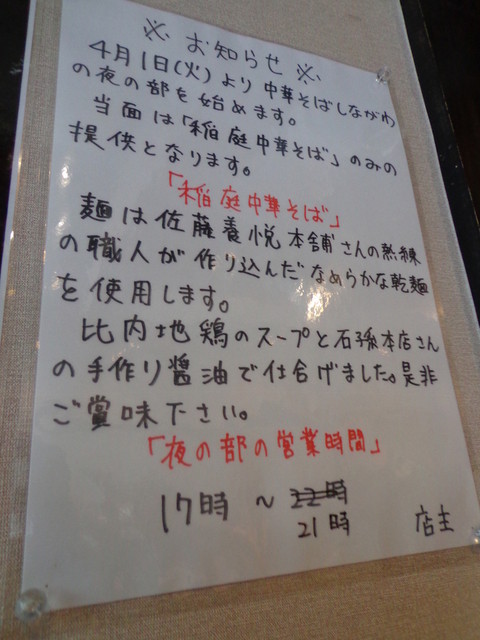 ※ お知らせ ※
4月1日(火)より中華そばしながわ
の夜の部を始めます。
当面は「稲庭中華そば」のみの
提供となります。
「稲庭中華そば」
麺は佐藤養悦本舗さんの熟練
の職人が作り込んだなめらかな乾麺
を使用します。
比内地鶏のスープと石孫本店さん
の手作り醤油で仕上げました。是非
ご賞味下さい。
「夜の部の営業時間」
17時 ~ 22時
21時
店主